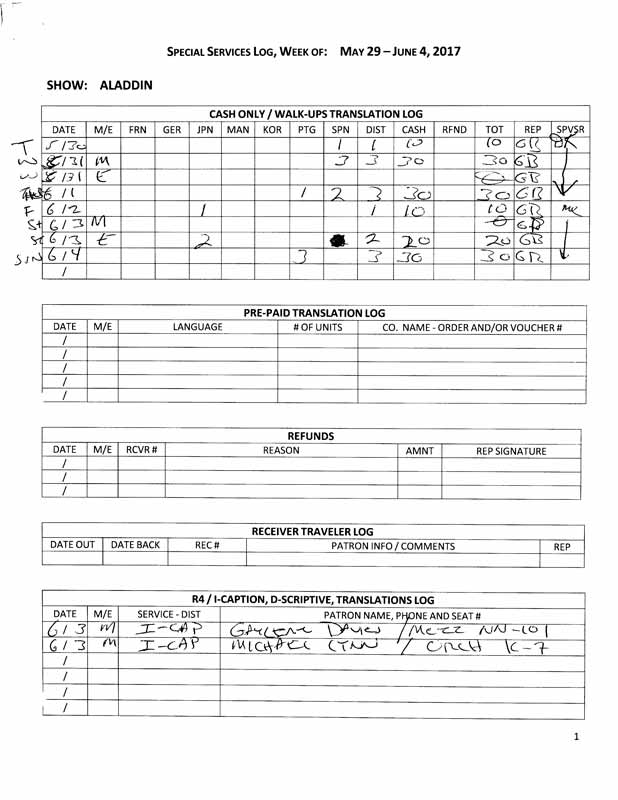 SPECIAL SERVICES LOG, WEEK OF: MAY 29 – JUNE 4, 2017
SHOW: ALADDIN
CASH ONLY / WALK-UPS TRANSLATION LOG
DATE M/E FRN GER JPN MAN KOR PTG SPN DIST CASH RFND TOT REP SPVSR
T 5/30 1 1 10 10 GB
W 5/31 M 3 3 30 30 GB
W 5/31 E 0 GB
6/1 1 2 3 30 30 GB
F 6/2 1 1 10 10 GB
St 6/3 M 0 GB
St 6/3 E 2 2 20 20 GB
SUN 6/4 3 3 30 30 GB
/
PRE-PAID TRANSLATION LOG
DATE M/E LANGUAGE # OF UNITS CO. NAME - ORDER AND/OR VOUCHER #
/
/
/
/
/
REFUNDS
DATE M/E RCVR # REASON AMNT REP SIGNATURE
/
/
/
RECEIVER TRAVELER LOG
DATE OUT DATE BACK REC # PATRON INFO / COMMENTS REP
R4 / I-CAPTION, D-SCRIPTIVE, TRANSLATIONS LOG
DATE M/E SERVICE - DIST PATRON NAME, PHONE AND SEAT #
6/3 M I-CAP GAYLENE / MEZZ NN-101
6/3 M I-CAP MICHAEL LYNN / ORCH K-7
/
/
/
/
1